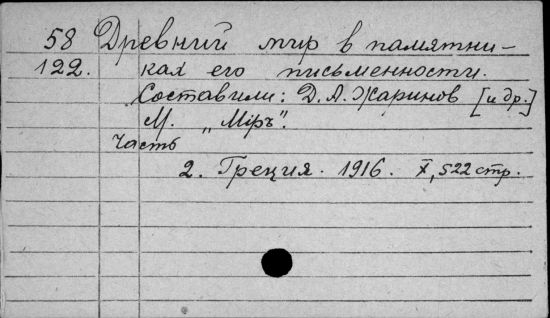 58 Древний мир в памятни-
122. ках его письменности.
Составили: Д. А. Жаринов [и др.]
М. „Мiръ".
Часть
2. Греция. 1916. X, 522 стр.